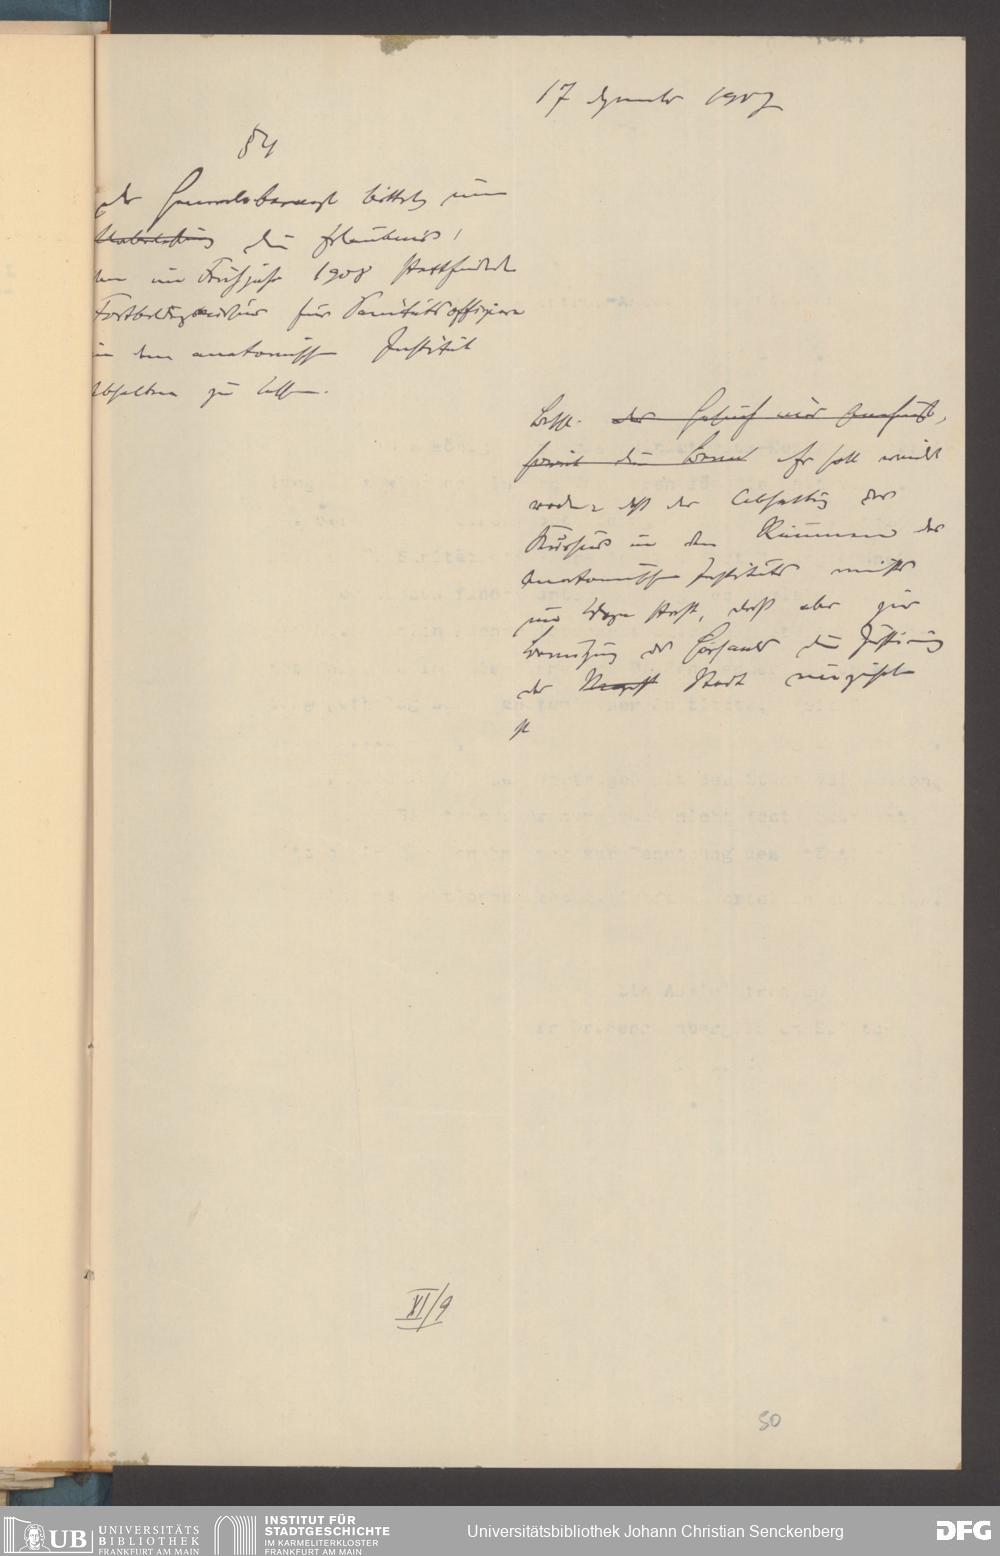 17 Dezember 1907
§ 4
der Generaloberarzt bittet, um
Ueberlassung die Erlaubnis,
den im Frühjahr 1908 stattfindenden
Fortbildungskursus für Sanitätsoffiziere
in dem anatomischen Institut
abhalten zu lassen.
Beschl. der Gesuch wird genehmigt,
soweit die Er soll erwidert
werden, daß der Abhaltung des
Kursus in den Räumen des
Anatomischen Instituts nichts
im Wege steht, daß aber zur
Benutzung der die Zustimmung
der Stadt
ist
XI/9
50
UB UNIVERSITÄTS
BIBLIOTHEK
FRANKFURT AM MAIN
INSTITUT FÜR
STADTGESCHICHTE
IM KARMELITERKLOSTER
FRANKFURT AM MAIN
Universitätsbibliothek Johann Christian Senckenberg
DFG